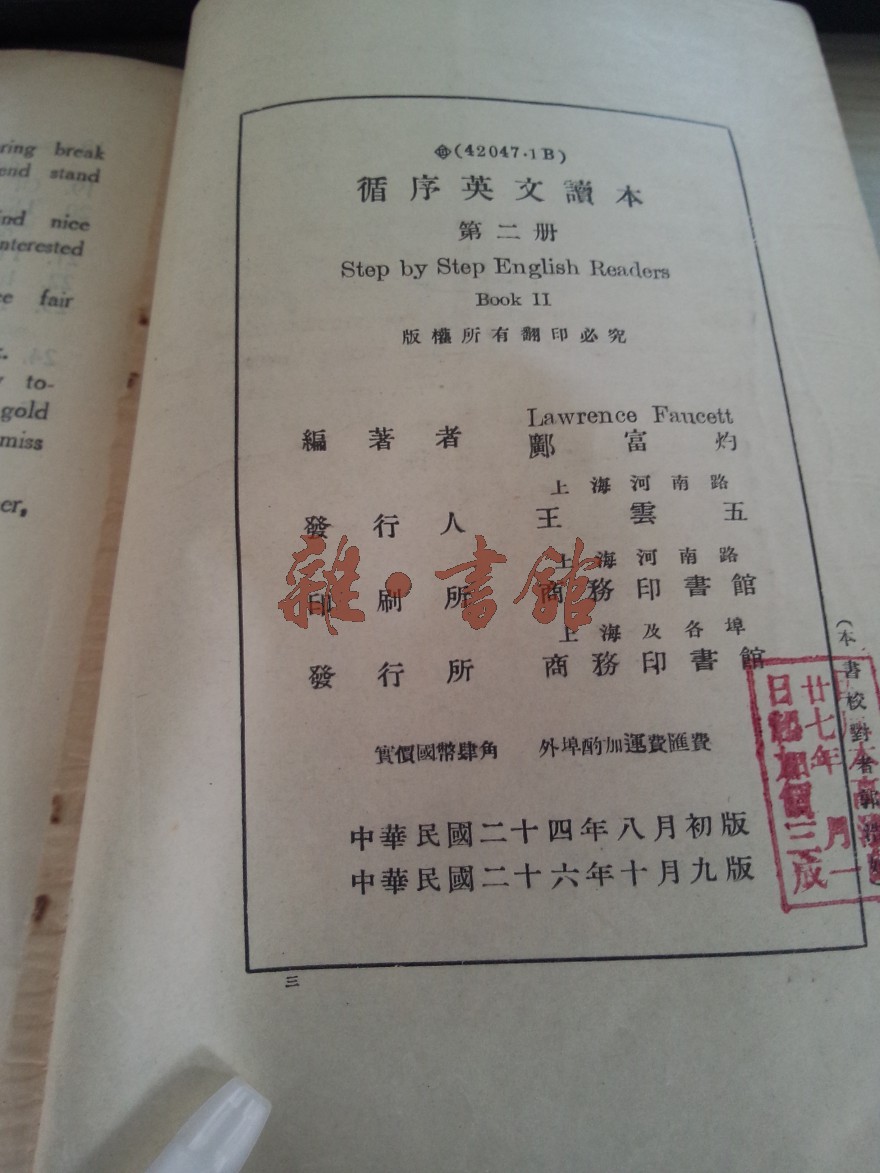 ring break
end stand
nice
nterested
fair
to-
gold
miss
er,
(42047·1B)
循序英文讀本
第二册
Step by Step English Readers
Book II
版權所有翻印必究
Lawrence Faucett
編著者 鄺富灼
上海河南路
發行人 王雲五
上海河南路
印刷所 商務印書館
上海及各埠
發行所 商務印書館
實價國幣肆角 外埠酌加運費匯費
中華民國二十四年八月初版
中華民國二十六年十月九版
三
(本書校對者
廿七年 月一
日起加價三成
雜·書館